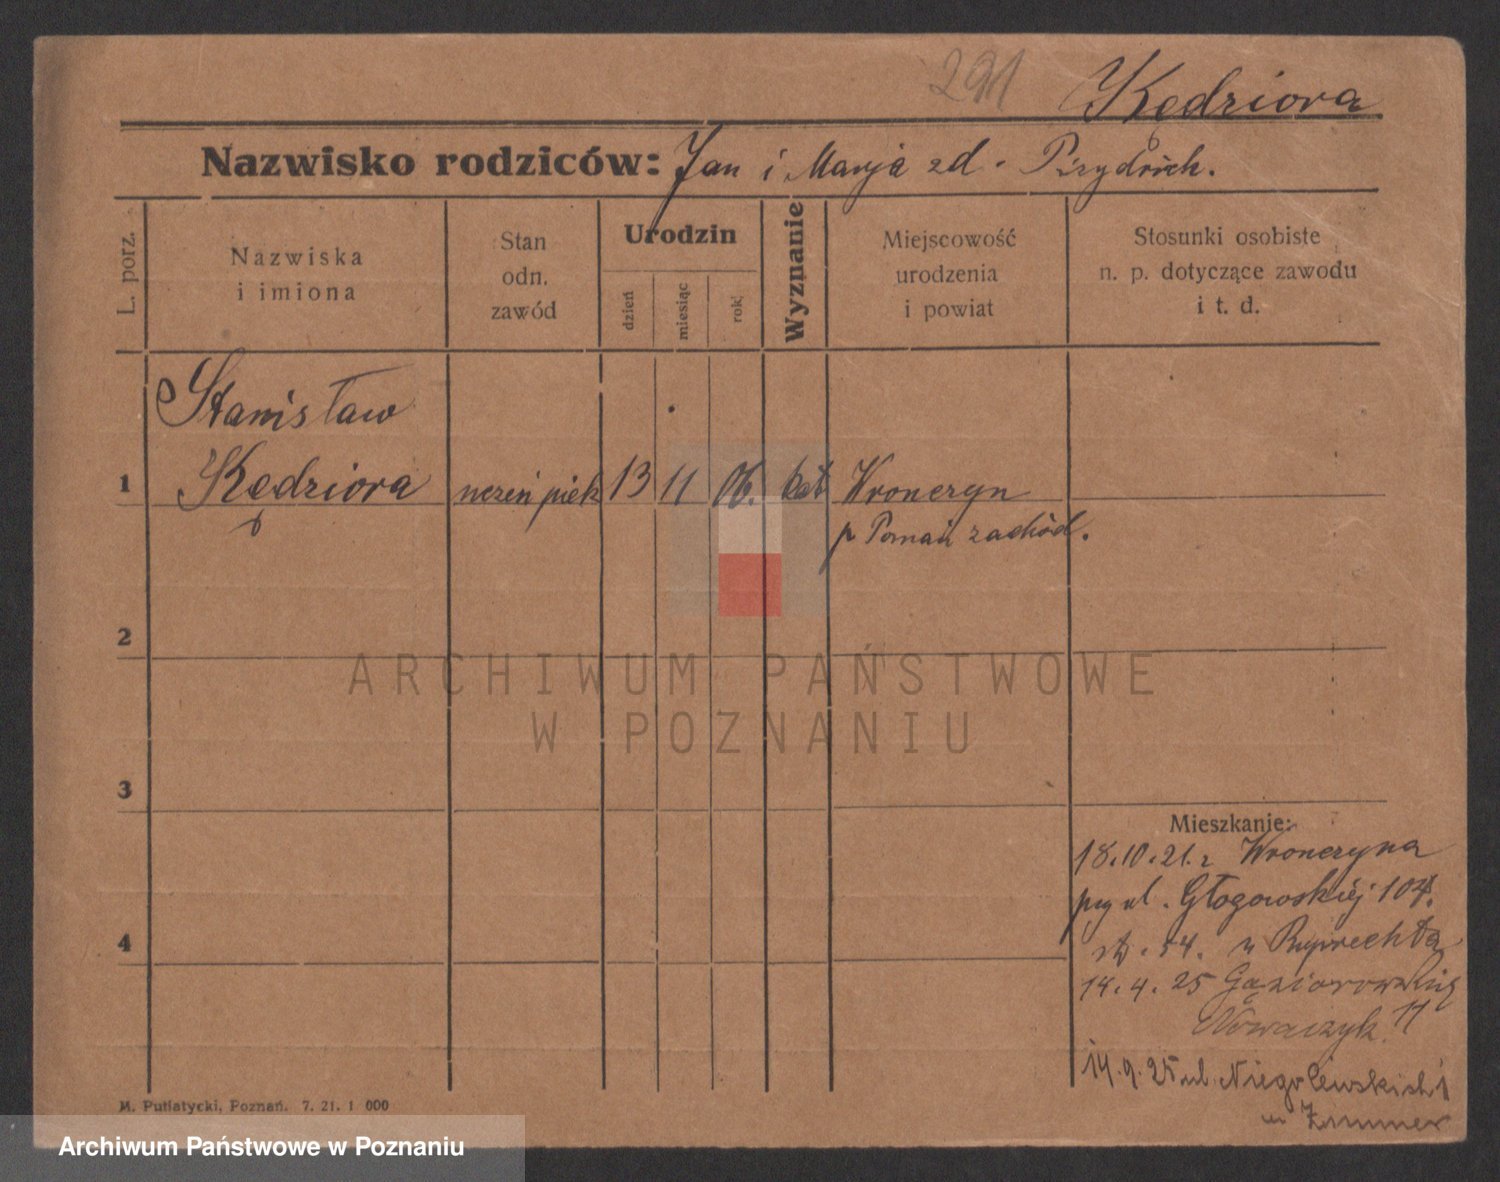 291 Kędziora
Nazwisko rodziców: Jan i Marja zd. Przydrich.
L. porz.
Nazwiska
i imiona
Stan
odn.
zawód
Urodzin
dzień
miesiąc
rok
Wyznanie
Miejscowość
urodzenia
i powiat
Stosunki osobiste
n. p. dotyczące zawodu
i t. d.
Stanisław
1 Kędziora uczeń piek 13 11 06. kat Wronczyn
p Poznań zachód.
2
ARCHIWUM PAŃSTWOWE
W POZNANIU
3
Mieszkanie:
18.10.21.r Wronczyna
przy ul. Głogowskiej 104.
4
u Ruprechta
14.4.25 Gąsiorowskich
Nowaczyk 11
14.9.25 ul. Niegolewskich 1
u Zimmer
M. Putiatycki, Poznań. 7. 21. 1 000
Archiwum Państwowe w Poznaniu